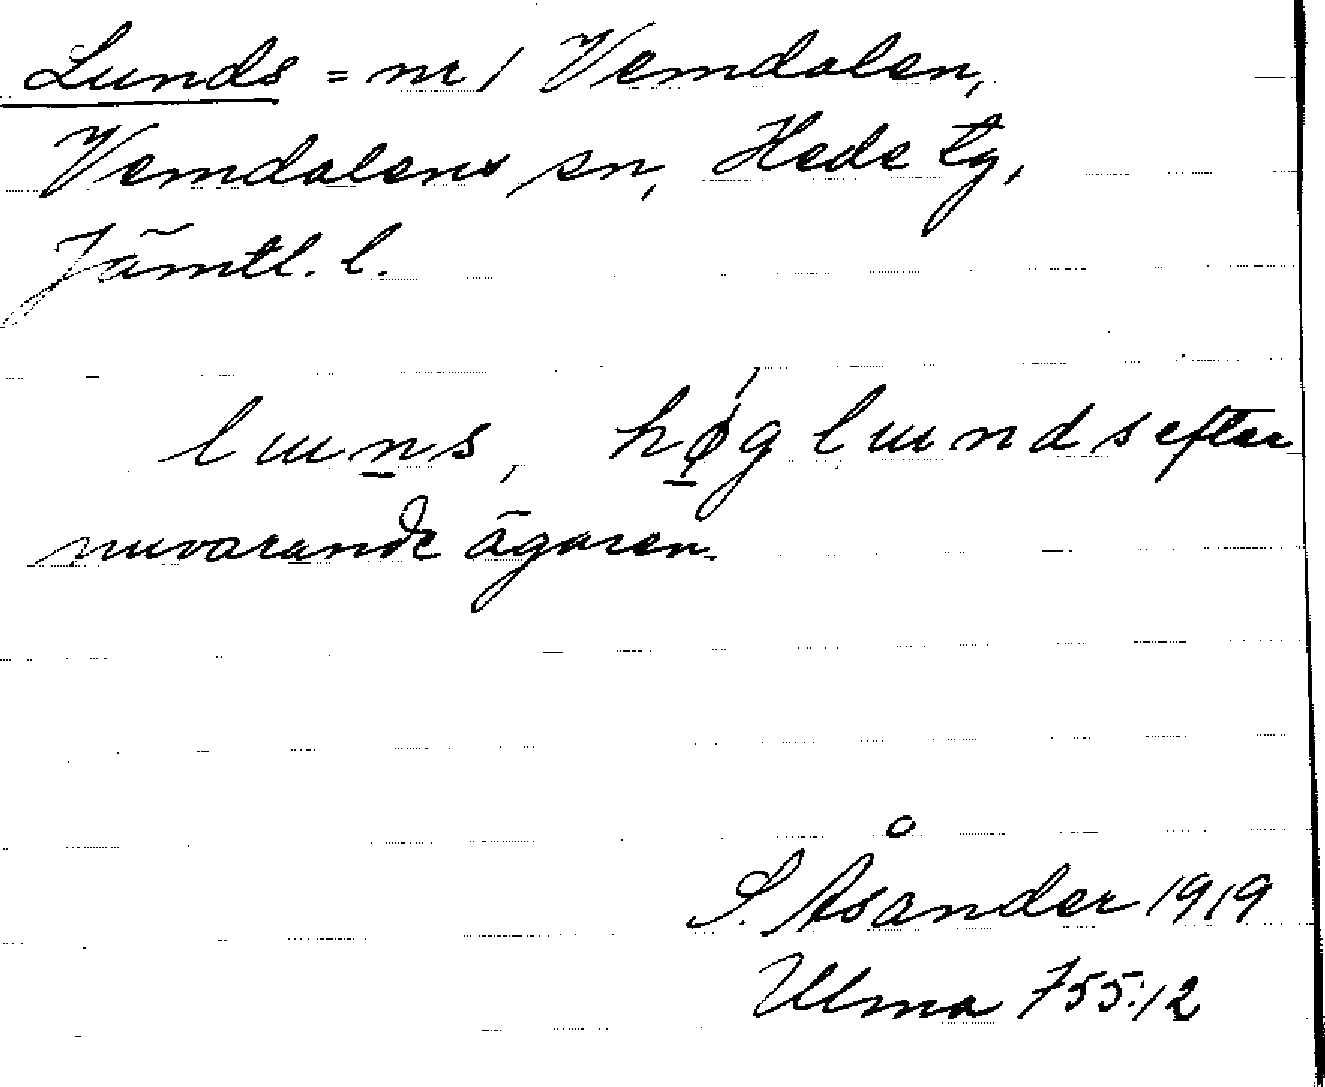 Lunds = nr 1 Vemdalen,
Vemdalens sn, Hede tg,
Jämtl. l.
luns, høglunds efter
nuvarande ägaren.
S. Åsander 1919
Ulma 755:12